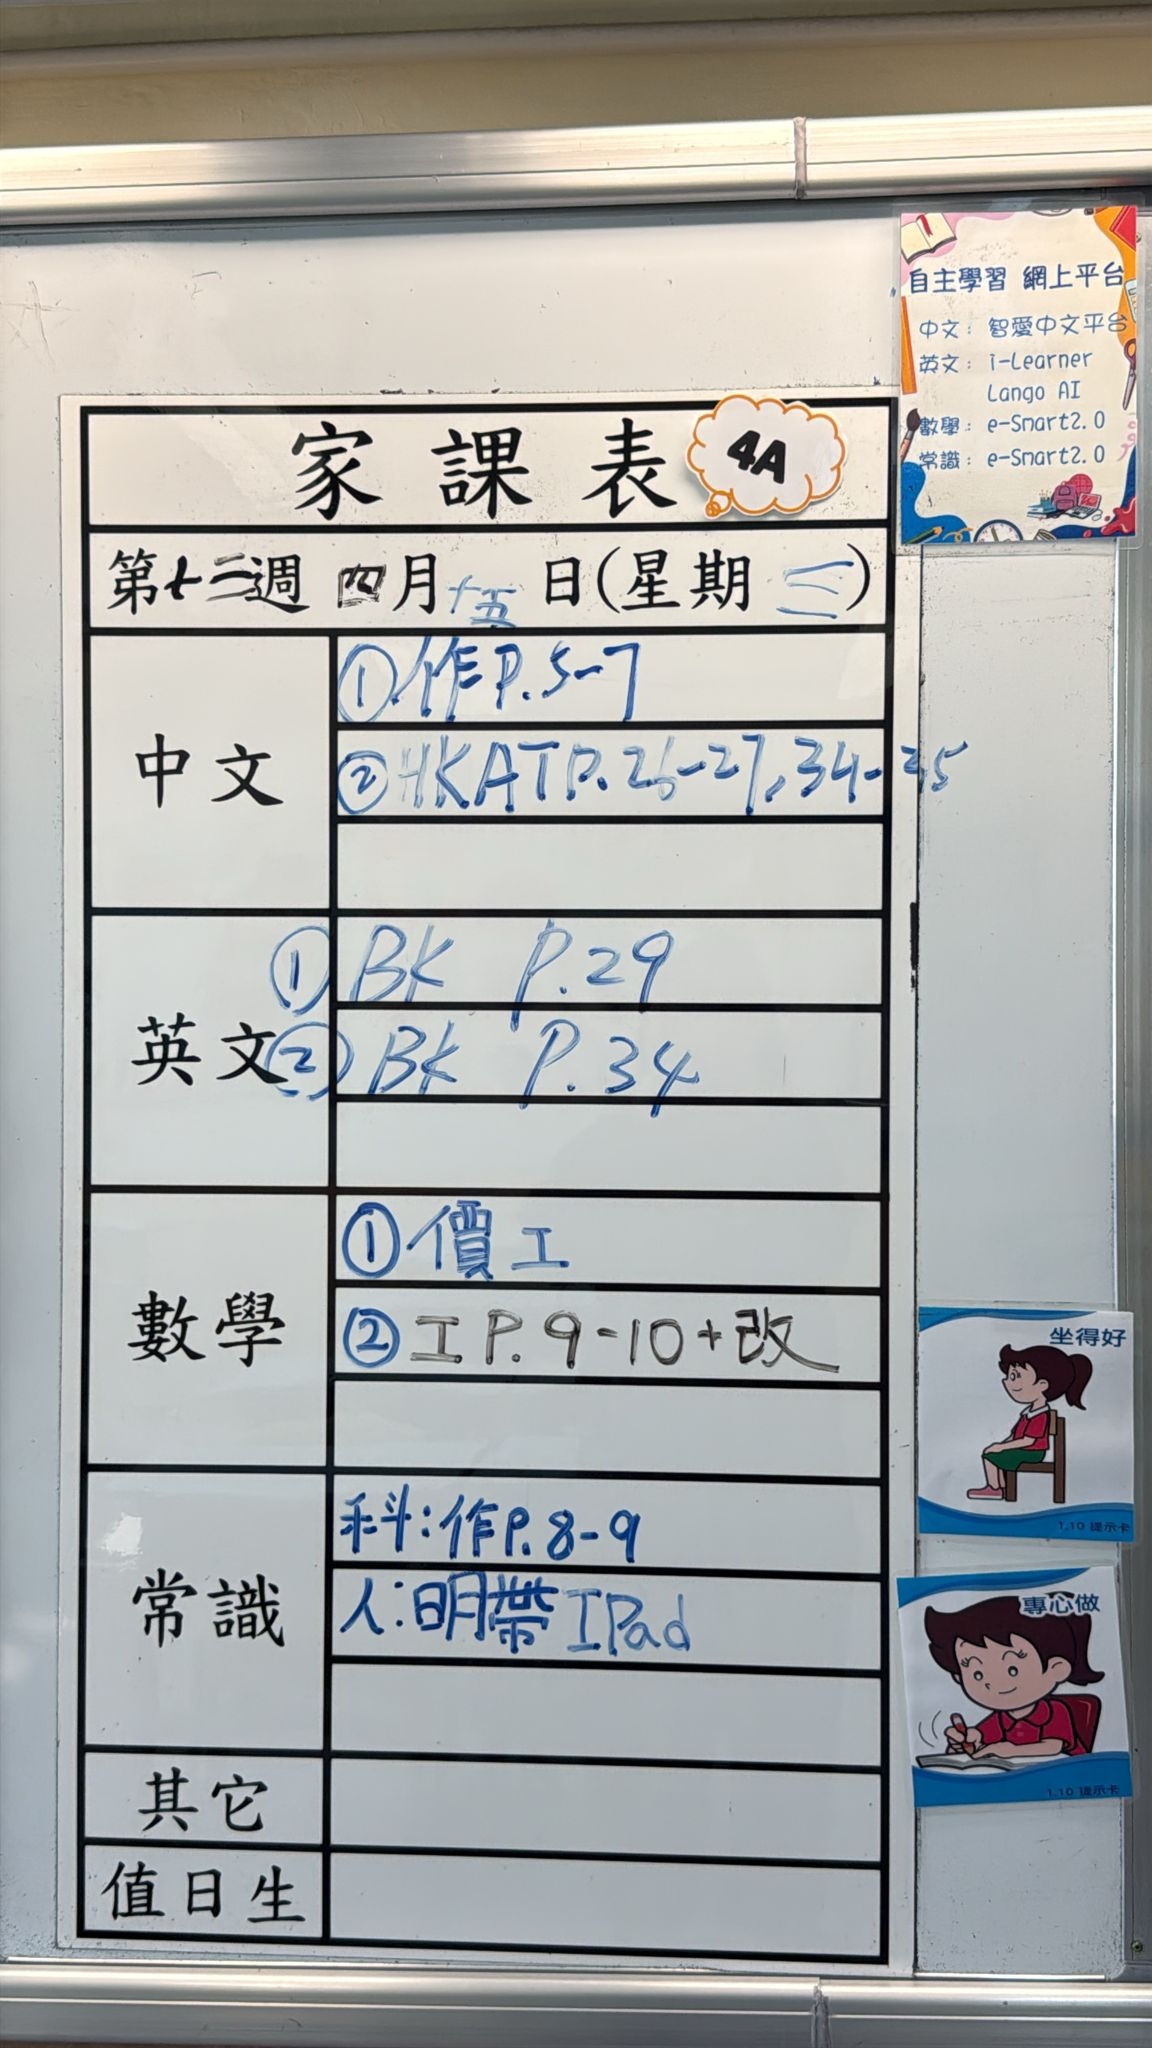 自主學習 網上平台
中文：智愛中文平台
英文：i-Learner
Lango AI
數學：e-Smart2.0
常識：e-Smart2.0
家課表 4A
第十二週 四月十五日(星期三)
中文
①作P.5-7
②HKAT P.26-27,34-35
英文
① BK P.29
② BK P.34
數學
①價工
②工P.9-10+改
常識
科:作P.8-9
人:明帶IPad
其它
值日生
坐得好
1.10 提示卡
專心做
1.10 提示卡